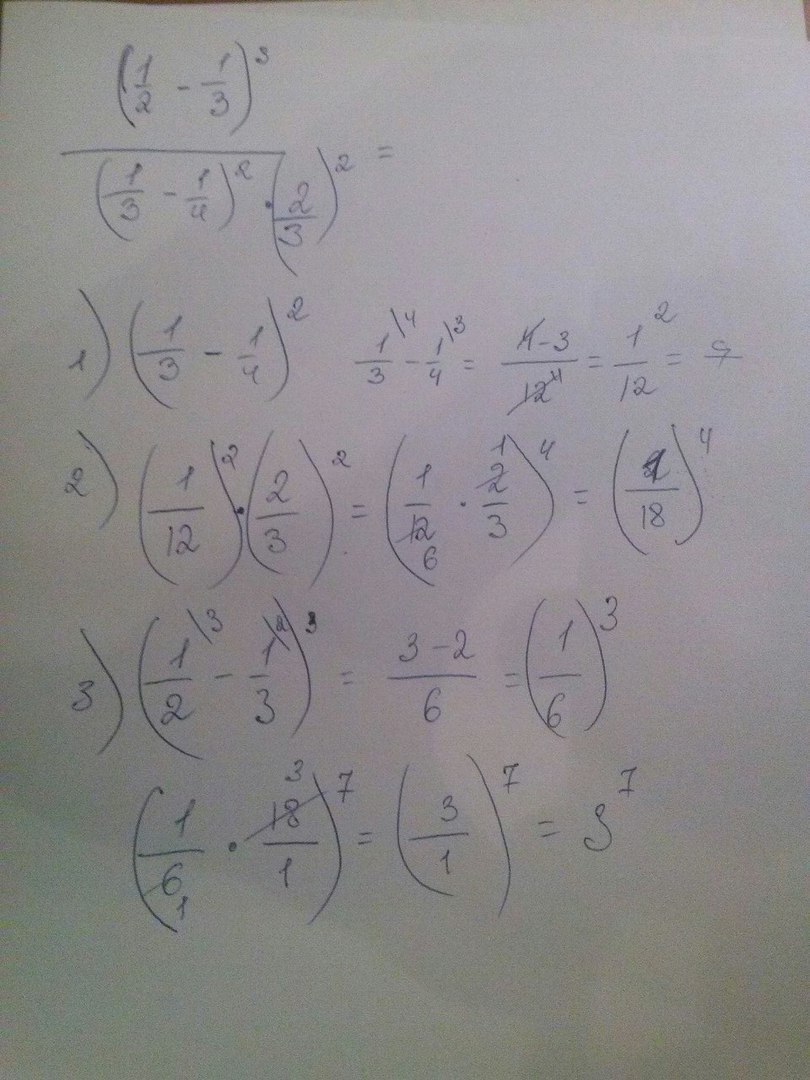 (1/2 - 1/3)^3
/
(1/3 - 1/4)^2 · (2/3)^2 =
1) (1/3 - 1/4)^2 1\4/3 - 1\3/4 = 4-3/12 = 1^2/12 =
2) (1/12)^2 · (2/3)^2 = (1/12 6 · 2 1/3)^4 = (1/18)^4
3) (1\3/2 - 1\2/3)^3 = 3-2/6 = (1/6)^3
(1/6 1 · 18 3/1)^7 = (3/1)^7 = 3^7